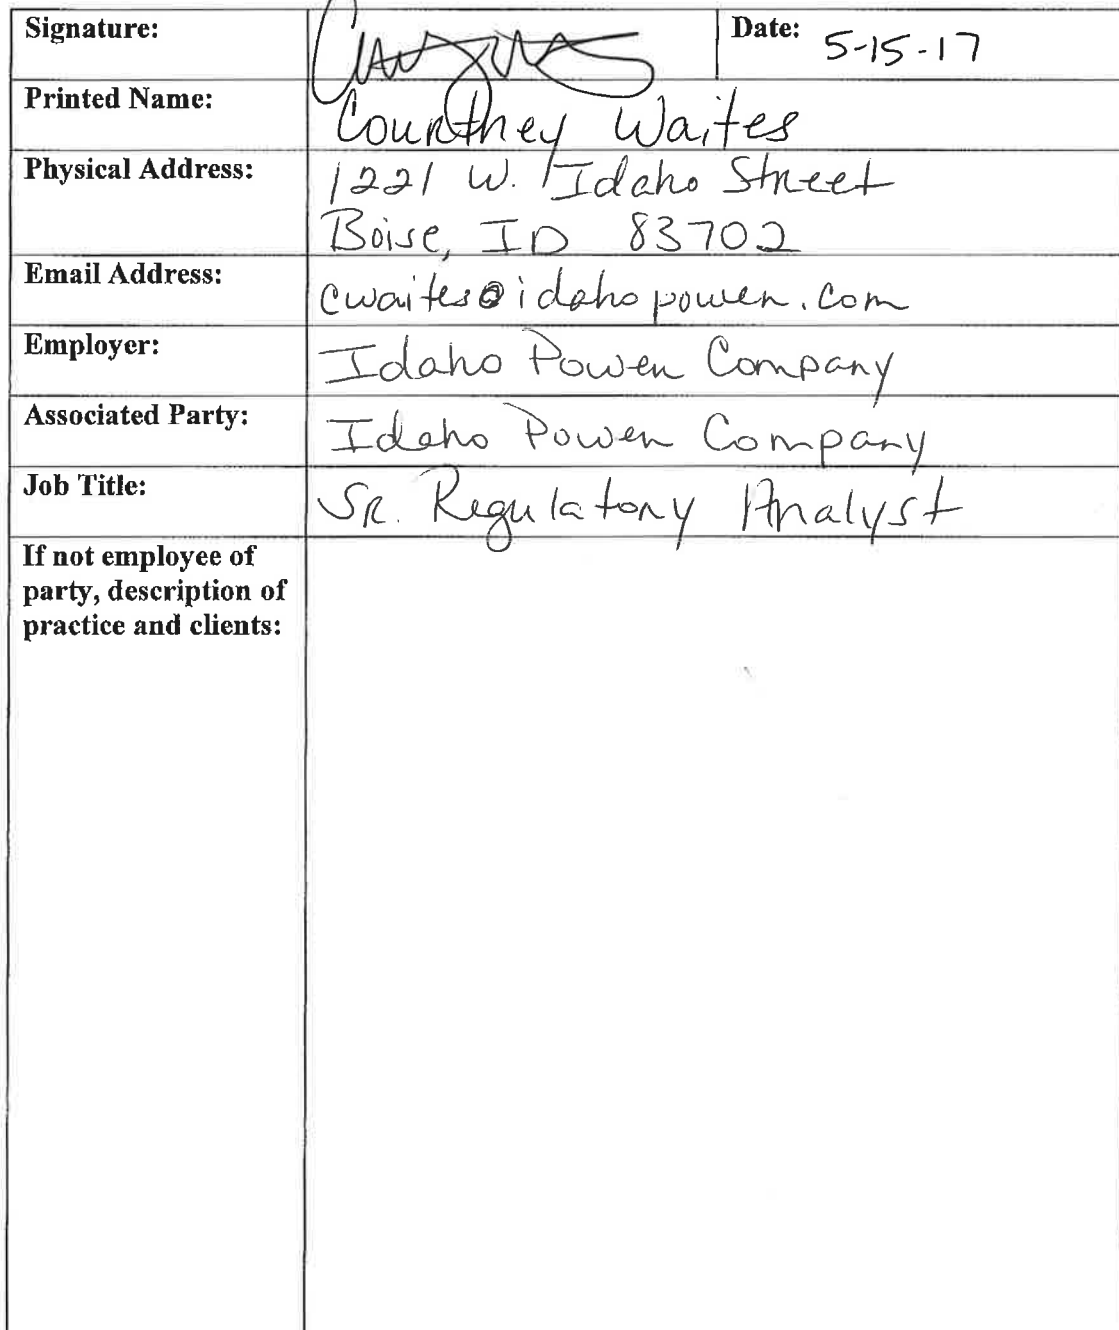 Signature:
Date: 5-15-17
Printed Name: Courtney Waites
Physical Address: 1221 W. Idaho Street
Boise, ID 83702
Email Address: cwaites@idahopower.com
Employer: Idaho Power Company
Associated Party: Idaho Power Company
Job Title: Sr. Regulatory Analyst
If not employee of
party, description of
practice and clients: